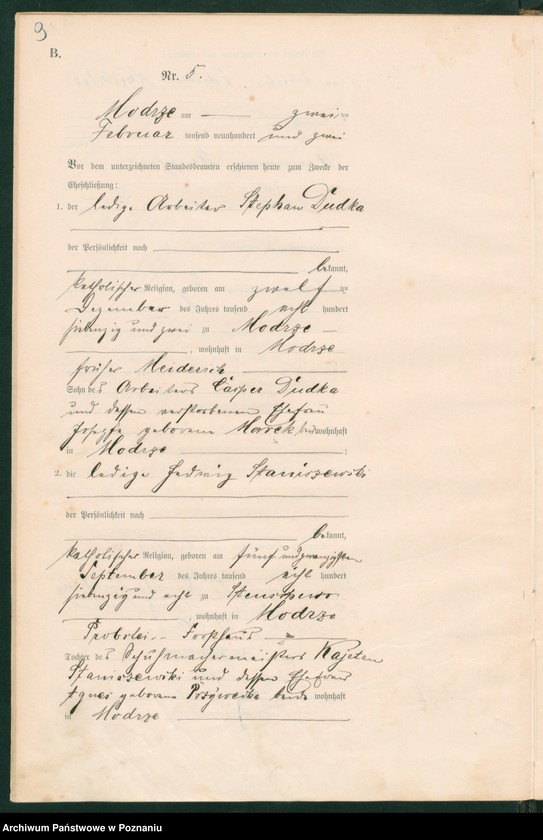 9
B.
Nr. 5.
Modrze am — zwei ten
Februar tausend neunhundert und zwei
Vor dem unterzeichneten Standesbeamten erschienen heute zum Zwecke der
Eheschließung:
1. der ledige Arbeiter Stephan Dudka
der Persönlichkeit nach
bekannt,
katholischer Religion, geboren am zwölf ten
Dezember des Jahres tausend acht hundert
siebenzig und zwei zu Modrze
, wohnhaft in Modrze
früher Meiderich
Sohn des Arbeiters Casper Dudka
und dessen verstorbenen Ehefrau
Josepha geborene wohnhaft
in Modrze ;
2. die ledige Hedwig Staniszewski
der Persönlichkeit nach
bekannt,
katholischer Religion, geboren am fünfundzwanzigsten
September des Jahres tausend acht hundert
siebenzig und acht zu
, wohnhaft in Modrze
Probstei - Forsthaus
Tochter des Schuhmachermeisters Kajetan
Staniszewski und dessen Ehefrau
Agnes geborene beide wohnhaft
in Modrze
Archiwum Państwowe w Poznaniu